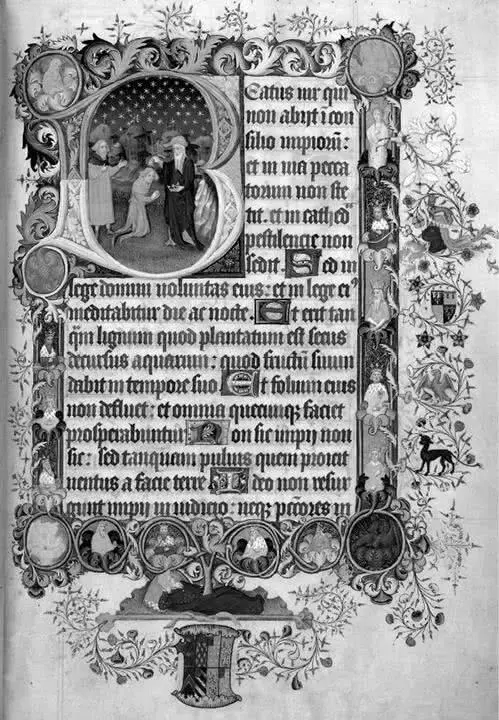 Beatus uir qui
non abijt i con
silio impiorū:
et in uia pecca
torum non ste
tit. et in cathedꝰ
pestilencie non
sedit. Sed in
lege domini uoluntas eius: et in lege eiꝰ
meditabitur die ac nocte. Et erit tan
qͣm lignum quod plantatum est secus
decursus aquarum: quod fructū suum
dabit in tempore suo Et folium eius
non defluet: et omnia quecumqꝫ faciet
prosperabuntur Non sic impij non
sic: sed tanquam puluis quem proicit
uentus a facie terre Ideo non resur
gunt impij in iudicio: neqꝫ pc̄tores in